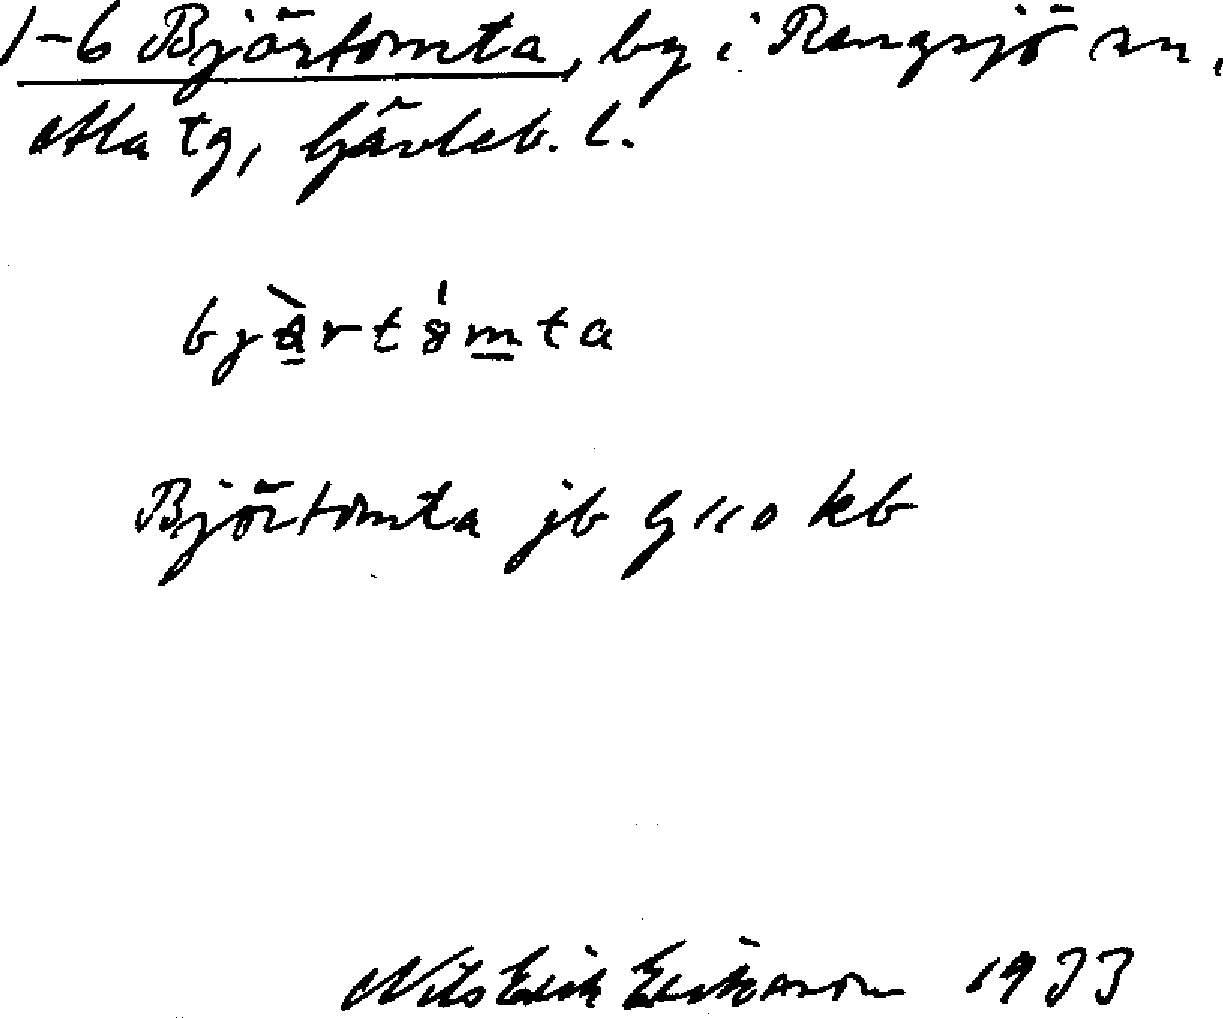 1-6 Björtomta, by i Rengsjö sn,
Ala tg, Gävleb. l.
Björtomta jb G 110 kb
Nils Erik Eriksson 1933